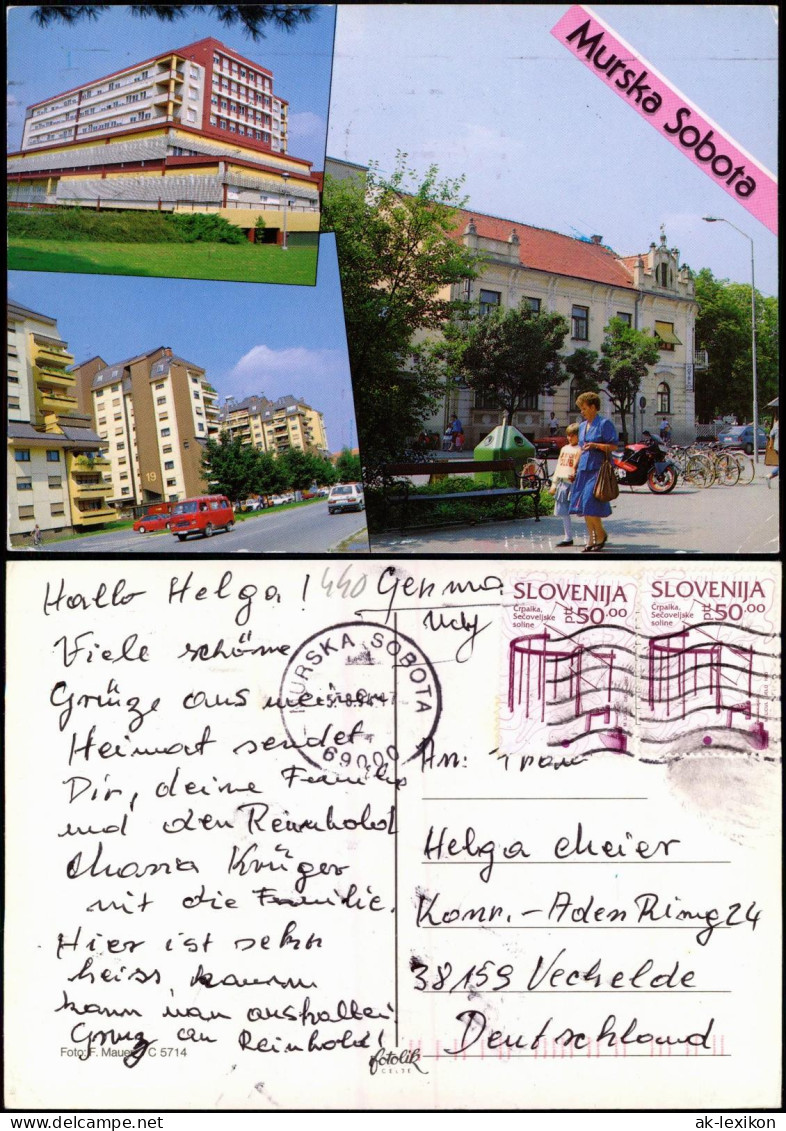 Murska Sobota
19
Hallo Helga! 440
Viele schöne
Grüze aus meine
Heimat sendet
Dir, deine Familie
und den Reinhold
Maria Krüger
mit die Familie.
Hier ist sehr
heiss, kaum
kann man aushalten
Gruz an Reinhold!
Foto: F. Mauer C 5714
fotolik
CELJE
MURSKA SOBOTA
69000
SLOVENIJA
Črpalka,
Sečoveljske
soline
ptt 50.00
SLOVENIJA
Črpalka,
Sečoveljske
soline
ptt 50.00
An: Frau
Helga Meier
Konr.-Aden Ring 24
38159 Vechelde
Deutschland
ak-lexikon